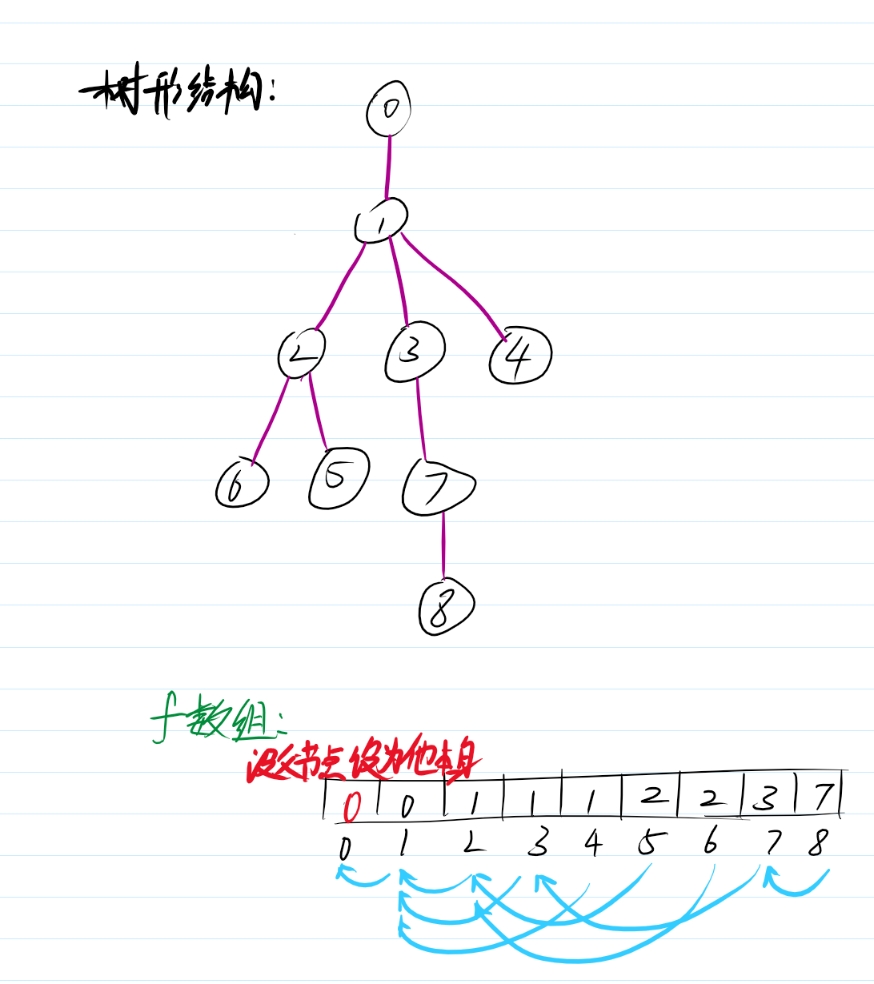 树形结构:
0
1
2 3 4
6 5 7
8
f数组:
没父节点设为他本身
0 0 1 1 1 2 2 3 7
0 1 2 3 4 5 6 7 8